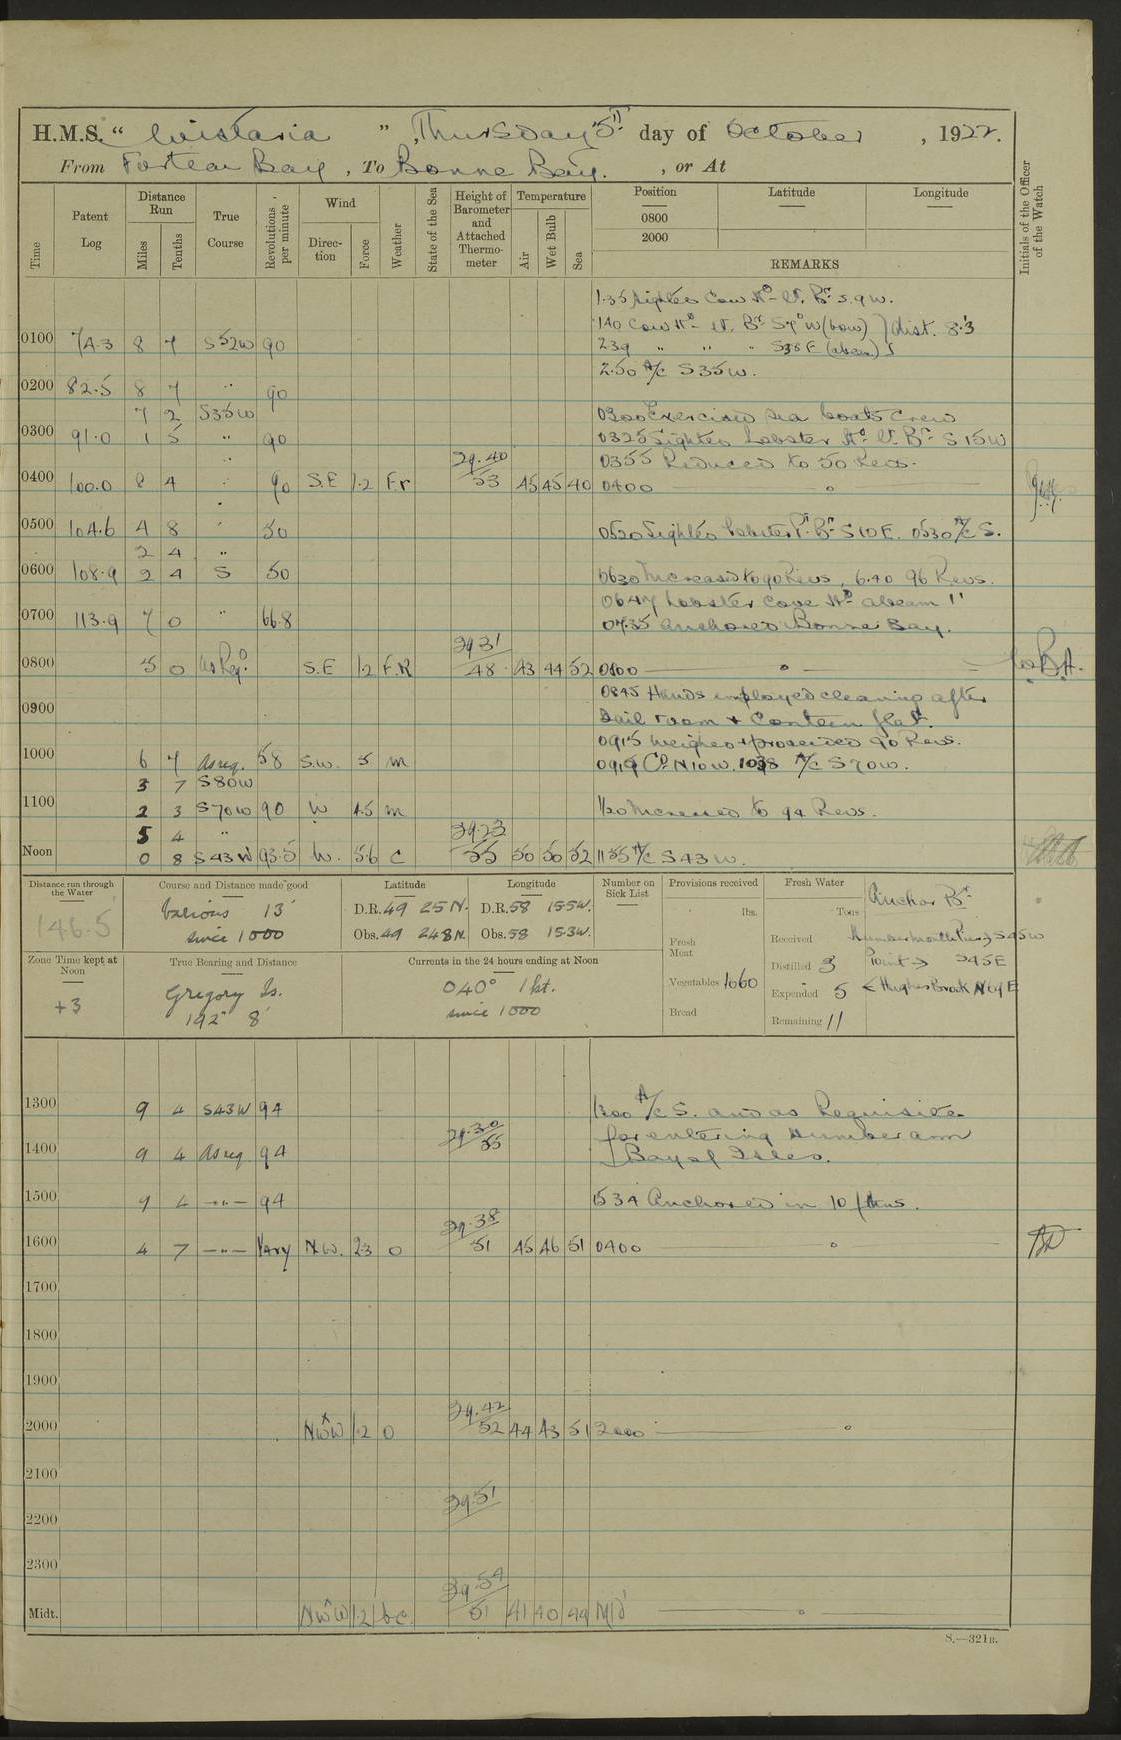 H.M.S. " Wistaria ", Thursday 5th day of October, 1922.
From Forteau Bay, To Bonne Bay., or At
Time
Patent Log
Distance Run
Miles
Tenths
True Course
Revolutions per minute
Wind
Direction
Force
Weather
State of the Sea
Height of Barometer and Attached Thermometer
Temperature
Air
Wet Bulb
Sea
Position Latitude Longitude
0800
2000
REMARKS
Initials of the Officer of the Watch
1.35 sighted Cow Hd Lt. Br S.9W.
140 Cow Hd Lt. Br S7°W (bow) } dist. 8.'3
0100 74.3 8 7 S52W 90 239 " " " S38E (abeam)
2.50 A/C S35W.
0200 82.5 8 7 " 90
7 2 S35W 0300 Exercised sea boats crew
0300 91.0 1 5 " 90 0325 Sighted Lobster Hd Lt. Br S15W
" 29.40 0355 Reduced to 50 Revs.
0400 100.0 8 4 " 90 S.E 1.2 F.r 53 45 45 40 0400
0500 104.6 4 8 " 50 0520 Sighted Lobster Pt Br S10E. 0530 A/C S.
2 4 "
0600 108.9 2 4 S 50 0630 Increased to 90 Revs, 6.40 96 Revs.
0647 Lobster Cove Hd abeam 1'
0700 113.9 7 0 " 66.8 0735 Anchored Bonne Bay.
29.31
0800 5 0 as Reqd S.E 1.2 F.R 48 43 44 52 0800
0845 Hands employed cleaning after
0900 Sail room & Canteen flat.
0915 Weighed & proceeded 90 Revs.
1000 6 7 As req. 58 S.W. 5 m 0919 Co N10W. 1038 A/C S70W.
3 7 S80W
1100 2 3 S70W 90 W 4.5 m 1120 Increased to 94 Revs.
5 4 " 29.23
Noon 0 8 S43W 93.5 W. 5.6 C 55 50 50 52 1155 A/C S43W.
Distance run through the Water
146.5
Course and Distance made good
Various 13'
since 1000
Latitude Longitude
D.R. 49 25N. D.R. 58 15.5W.
Obs. 49 24.8N. Obs. 58 15.3W.
Number on Sick List
Provisions received
lbs.
Fresh Meat
Vegetables 1060
Bread
Fresh Water
Tons
Received
Distilled 3
Expended 5
Remaining 11
Anchor Br
Humbermouth Pier → S45W
Point → S45E
← Hughes Brook N64E
Zone Time kept at Noon
+3
True Bearing and Distance
Gregory Is.
192° 8'
Currents in the 24 hours ending at Noon
040° 1kt.
since 1000
1300 9 4 S43W 94 1300 A/C S. and as Requisite
29.30 for entering Humber arm
1400 9 4 As req 94 55 Bay of Isles.
1500 9 4 -"- 94 1534 Anchored in 10 fthms.
29.38
1600 4 7 -"- Vary N.W. 2.3 O 51 45 46 51 0400
1700
1800
1900
29.42
2000 NWxW 1.2 O 52 44 43 51 2000
2100
29.51
2200
2300
29.54
Midt. NWxW 1.2 b.c. 51 41 40 49 M/d
S.—321B.